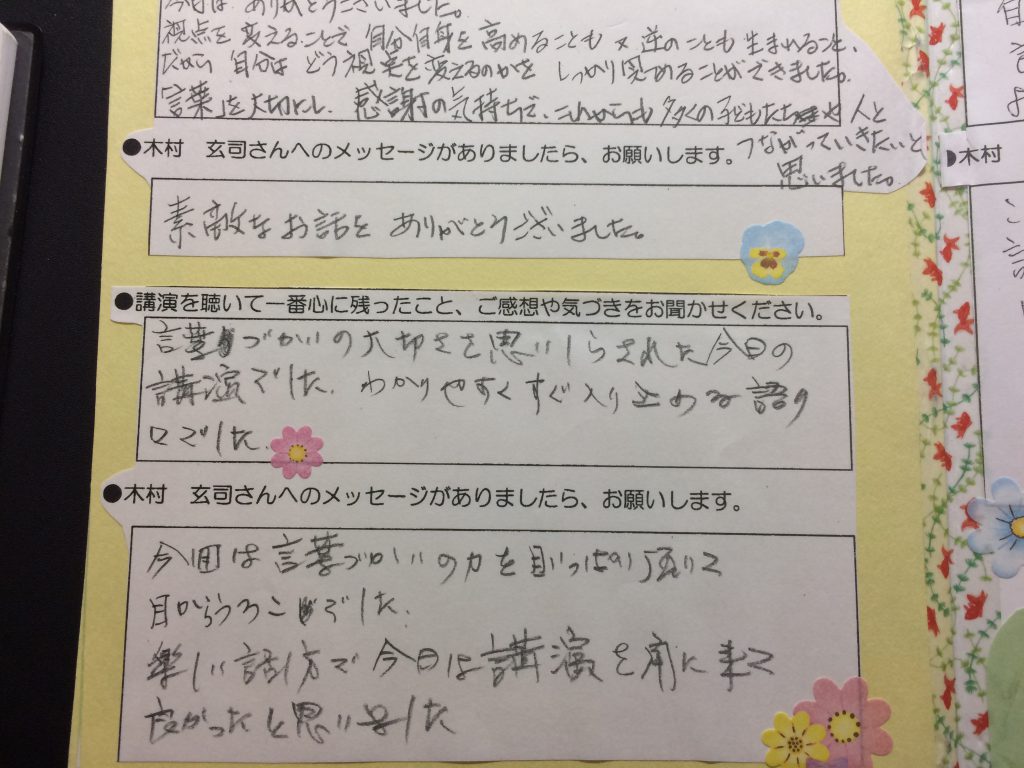 今日は ありがとうございました。
視点を変えることで、自分自身を高めることも 又 逆のことも 生まれること、
だから 自分は どう視実を変えるのかを しっかり見つめることができました。
言葉」を大切にし、感謝の気持ちで、これからも多くの子どもたちや 人と
つながっていきたいと
思いました。
●木村 玄司さんへのメッセージがありましたら、お願いします。
●木村
素敵なお話を ありがとうございました。
●講演を聴いて一番心に残ったこと、ご感想や気づきをお聞かせください。
言葉づかいの大切さを思いしらされた今日の
講演でした。わかりやすくすぐ入り止める語り
口でした。
●木村 玄司さんへのメッセージがありましたら、お願いします。
今回は言葉づかいの力を目いっぱい
目からうろこでした。
楽しい話し方で今日は講演を 来て
良かったと思いました